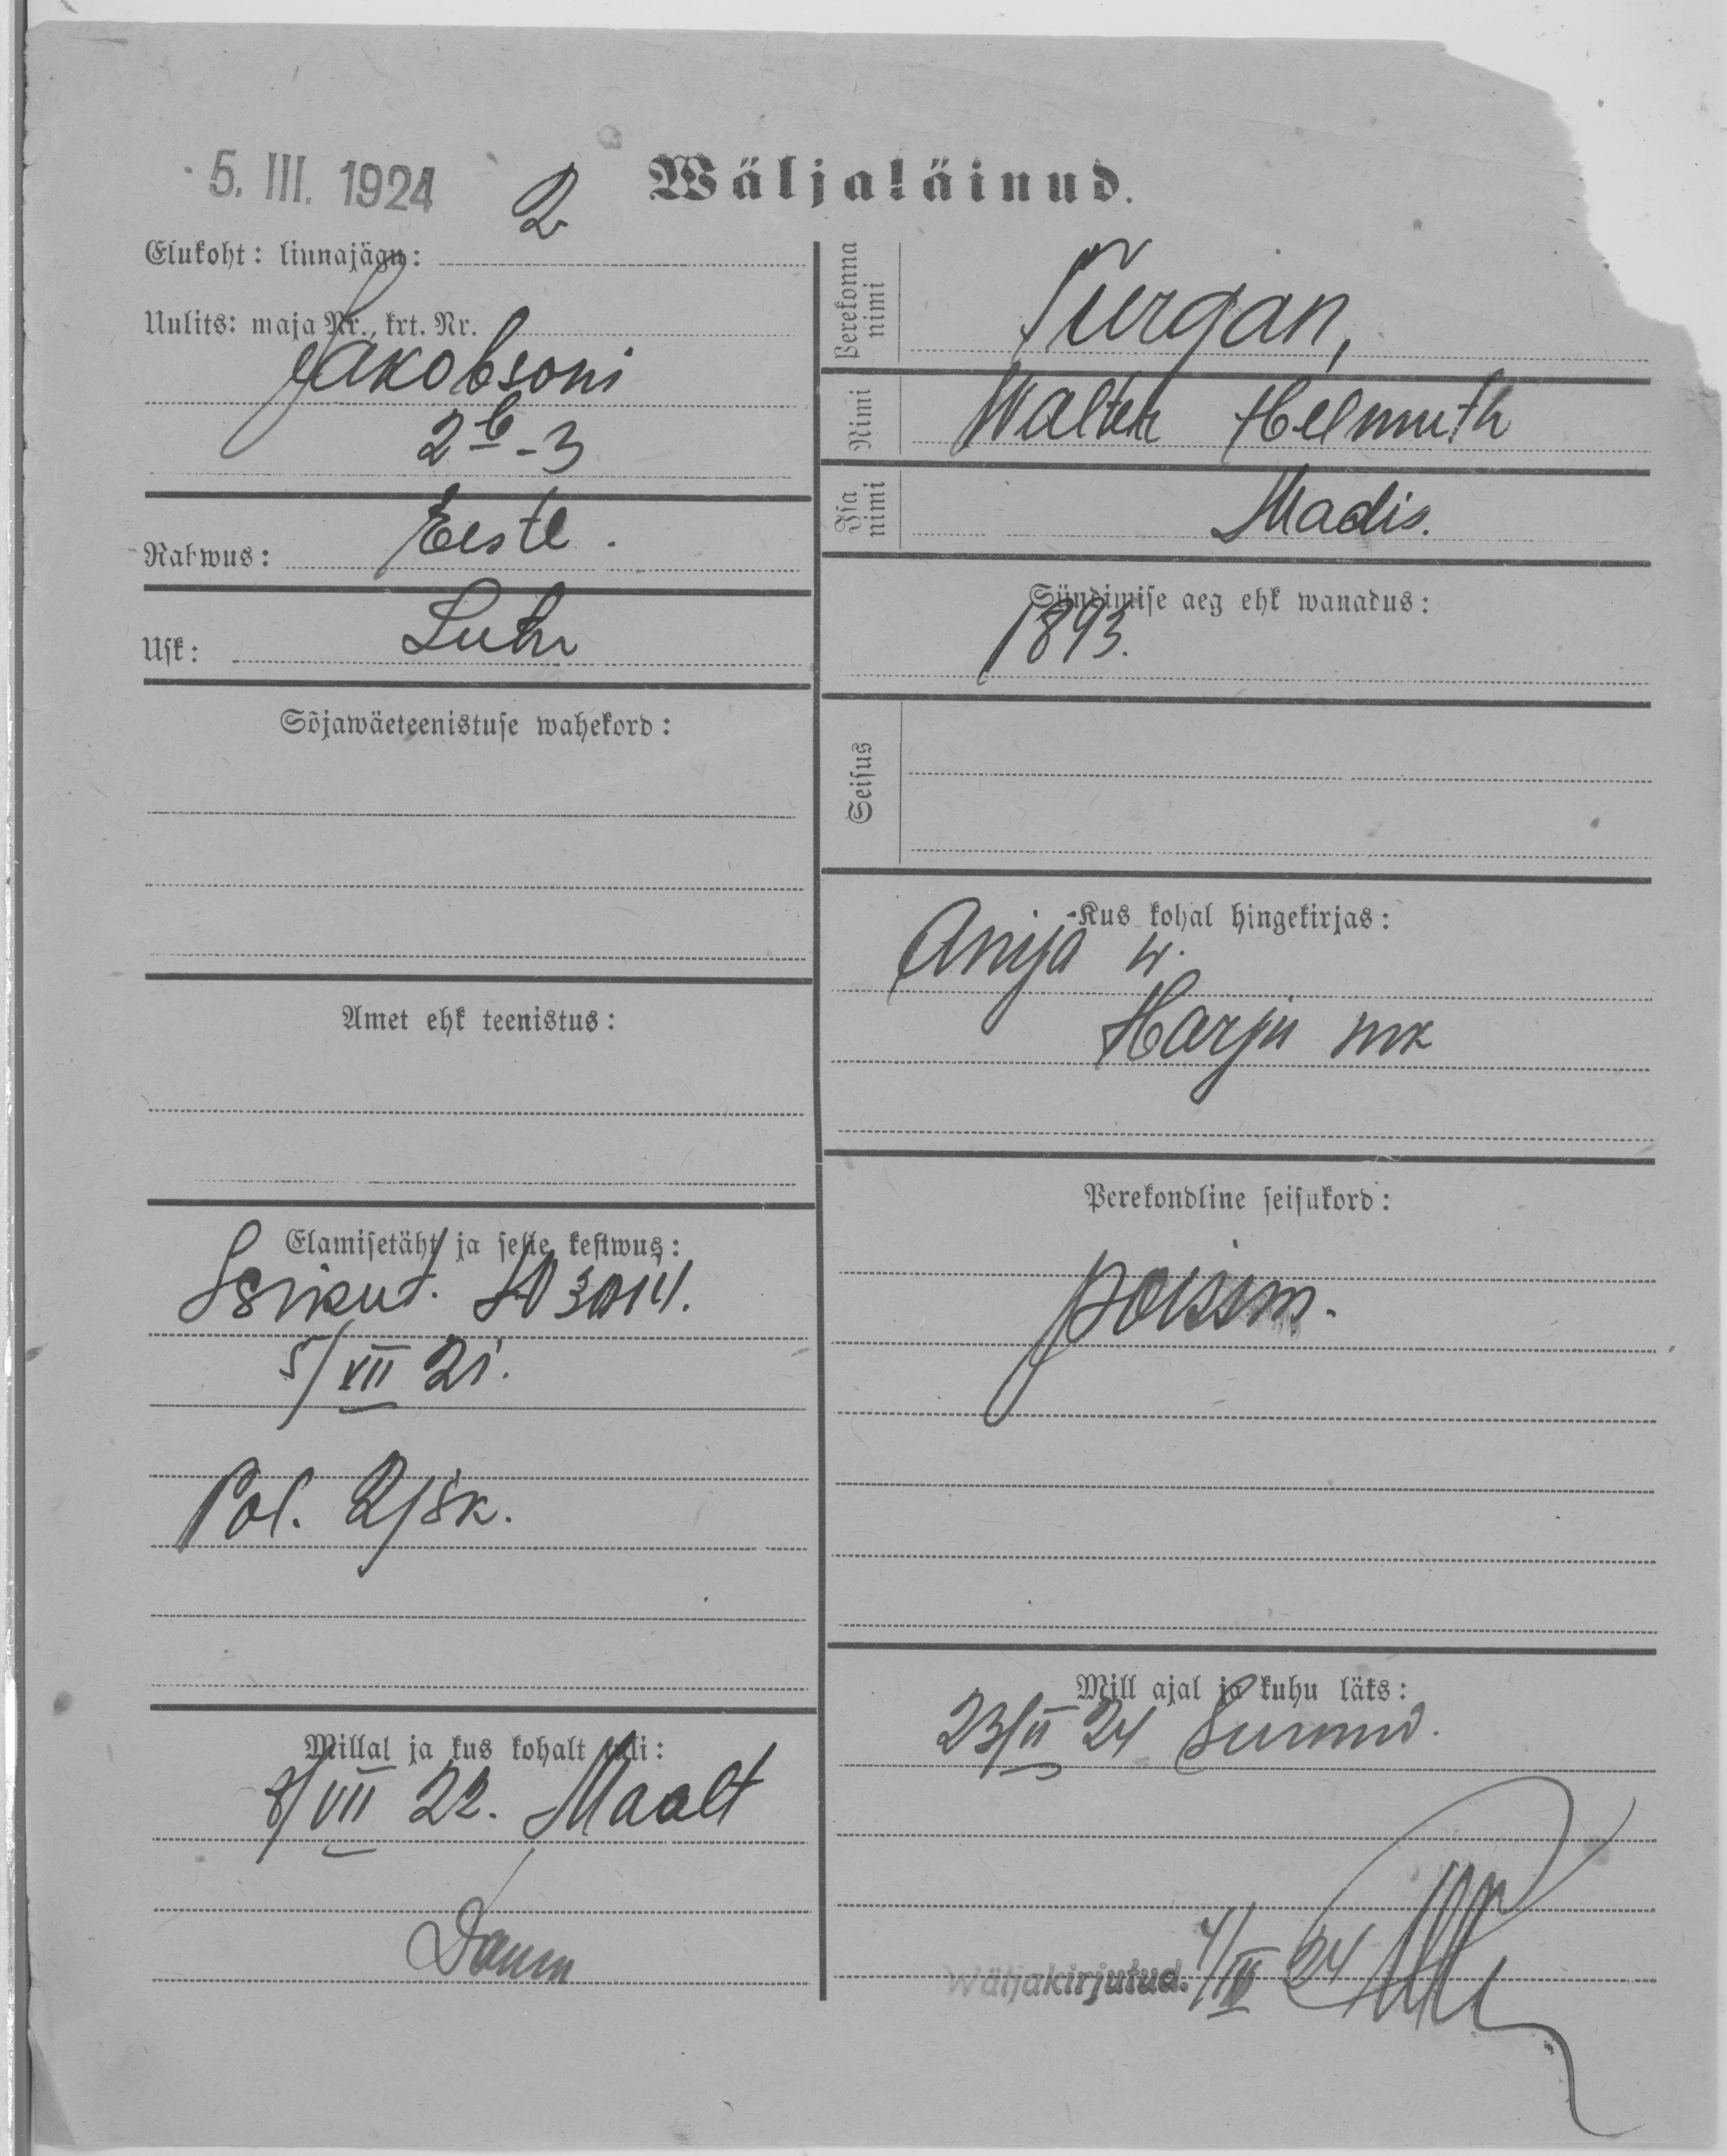 5. III. 1924
2
Wäljaläinud.
Elukoht: linnajägu:
Uulits: maja Nr., krt. Nr.
Jakobsoni
2b - 3
Rahwus: Eestl.
Usk: Luth
Sõjawäeteenistuse wahekord:
Amet ehk teenistus:
Elamisetäht ja selle kestwus:
Isikut.
5/XII 21.
Pol. 2/jsk.
Millal ja kus kohalt tuli:
8/VII 22. Maalt
Perekonna nimi
Turgan,
Nimi
Walter Helmuth
Isa nimi
Madis.
Sündimise aeg ehk wanadus:
1893.
Seisus
Kus kohal hingekirjas:
Anija w.
Harju mk
Perekondline seisukord:
poissm.
Mill ajal ja kuhu läks:
23/II 24 Surnud.
Wäljakirjutud. 4/III 24